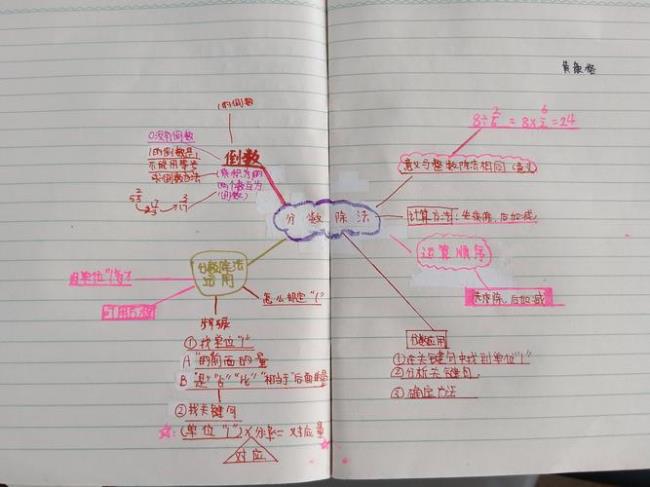 1的倒数
倒数
0没有倒数
1的倒数是1
不能用等号
求倒数方法
(乘积为1的
两个数互为
倒数)
分数除法
8÷2/6=8×6/2=24
意义与整数除法相同(意义)
计算方法:先乘除,后加减
运算顺序
先乘除,后加减
分数应用
①在关键句中找到单位"1"
②分析关键句
③确定方法
分数除法
应用
找单位"1"
怎么规定"1"
①找单位"1"
A "的"前面的量
B "是""占""比""相当于"后面的量
②找关键句
☆:(单位"1")×分率=对应量
对应